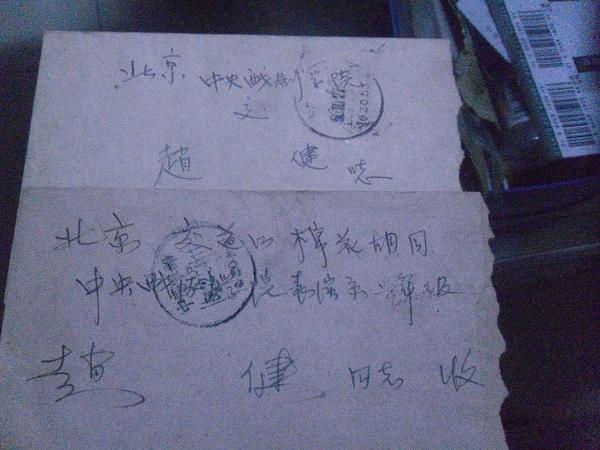 北京 中央戏剧学院
交
赵 健 志
北京 交道口 棉花胡同
中央戏剧学院表演系二年级
赵 健 同志 收